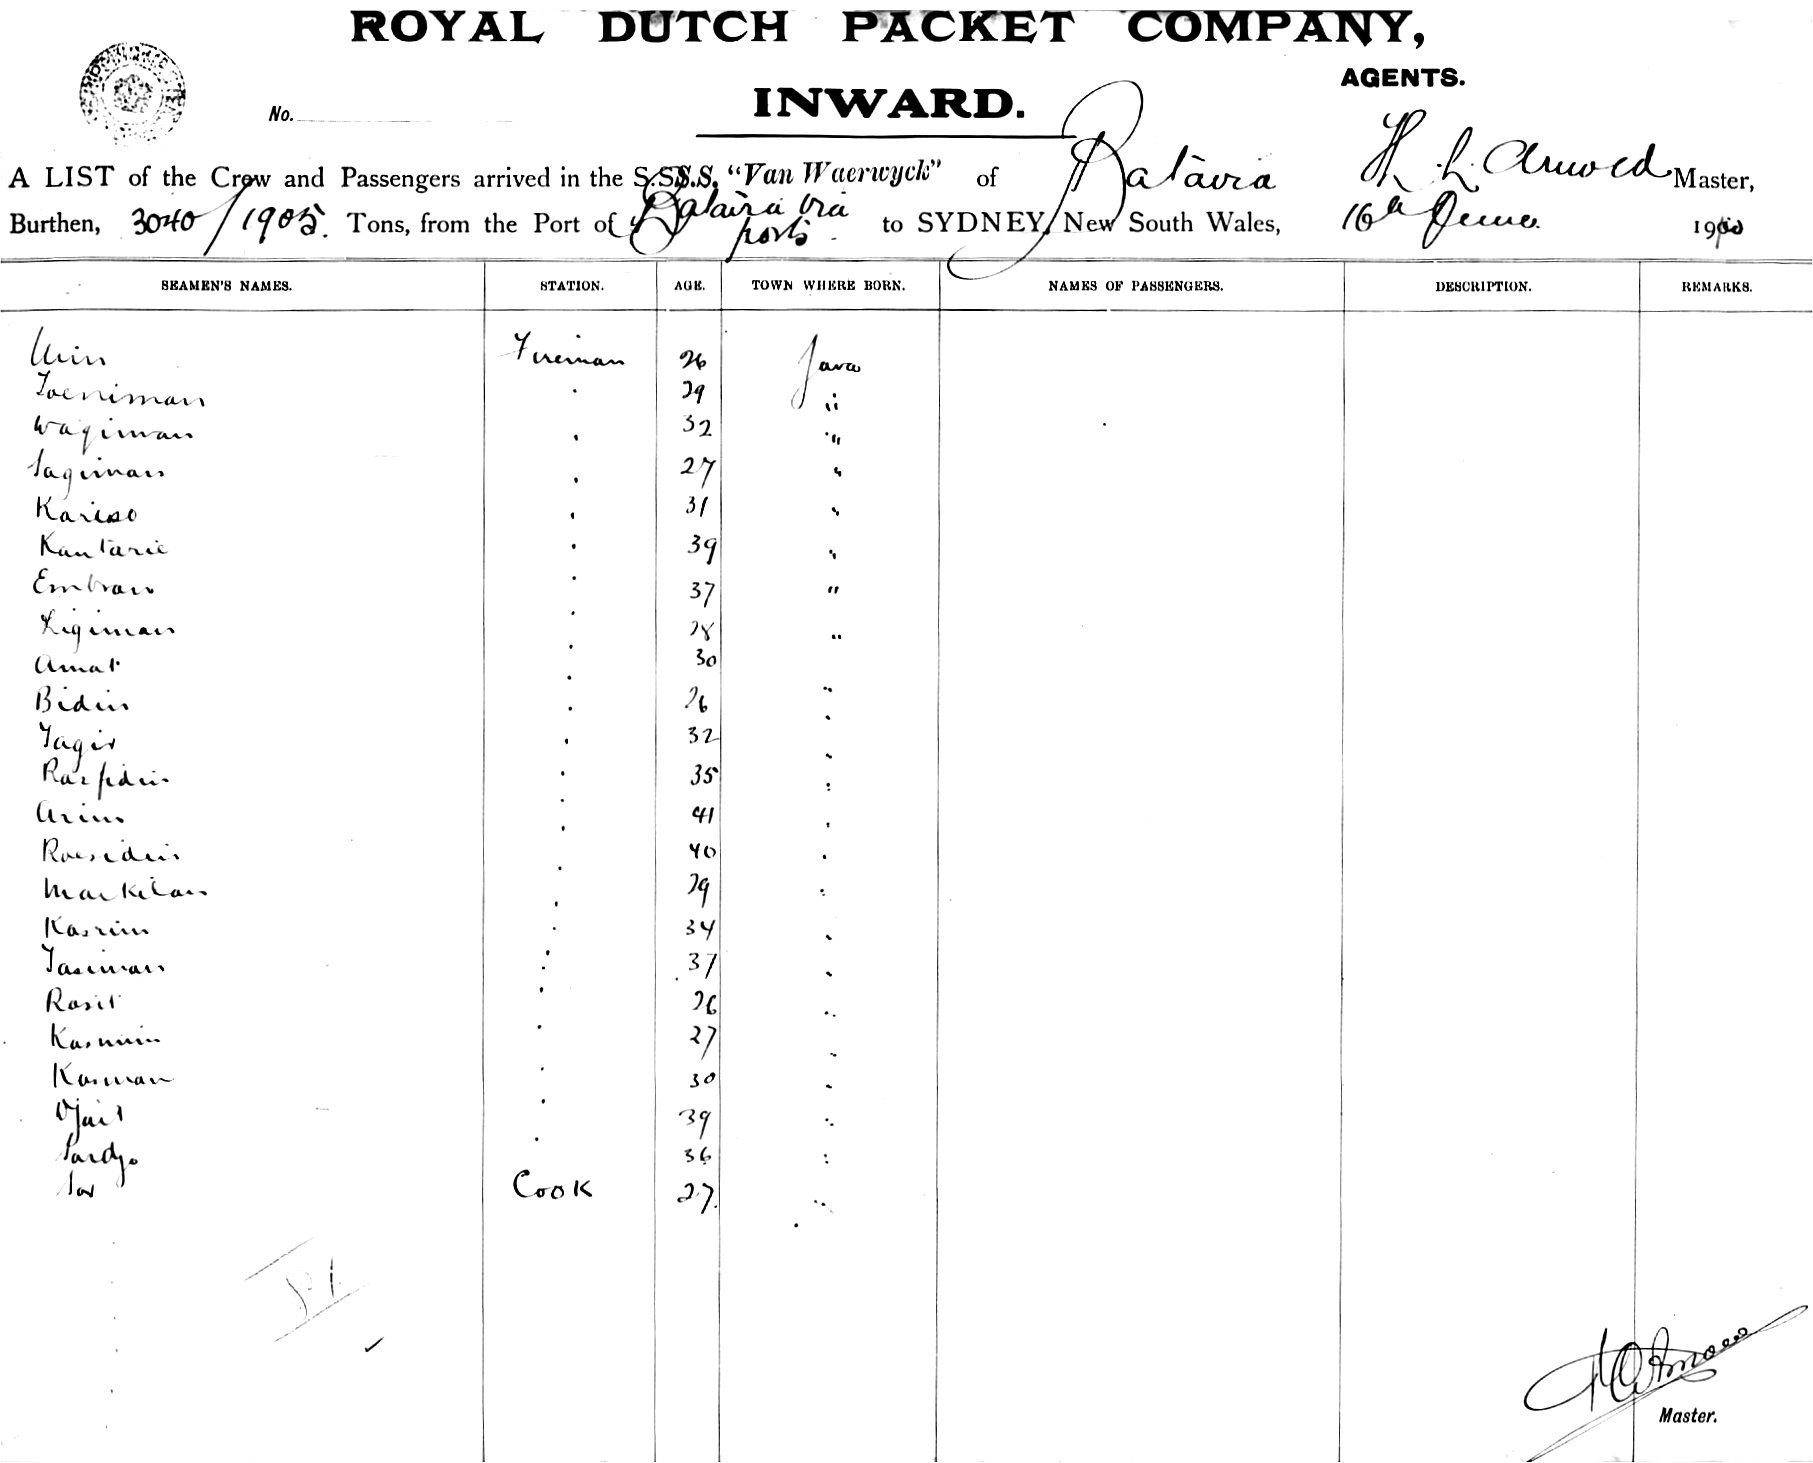 ROYAL DUTCH PACKET COMPANY,
AGENTS.
INWARD.
No.
A LIST of the Crew and Passengers arrived in the S.S. "Van Waerwyck" of Batavia Master,
Burthen, 3040/1905. Tons, from the Port of Batavia via ports. to SYDNEY, New South Wales, 16th June. 1910
SEAMEN'S NAMES. STATION. AGE. TOWN WHERE BORN. NAMES OF PASSENGERS. DESCRIPTION. REMARKS.
Fireman 26 Java
Toeniman . 29 "
Wagiman . 32 "
Sagiman . 27 "
Kariso . 31 "
Kantarie . 39 "
Embran . 37 "
Ligiman . 28 "
Amat . 30 "
Bidin . 26 "
Tagir . 32 "
35 "
Arim . 41 "
Roesidin . 40 "
29 "
Kasrim . 34 "
Tasiman . 37 "
Rasit . 26 "
Kasmin . 27 "
Kasman . 30 "
Djait . 39 "
Sardjo . 36 "
Cook 27. "
Master.